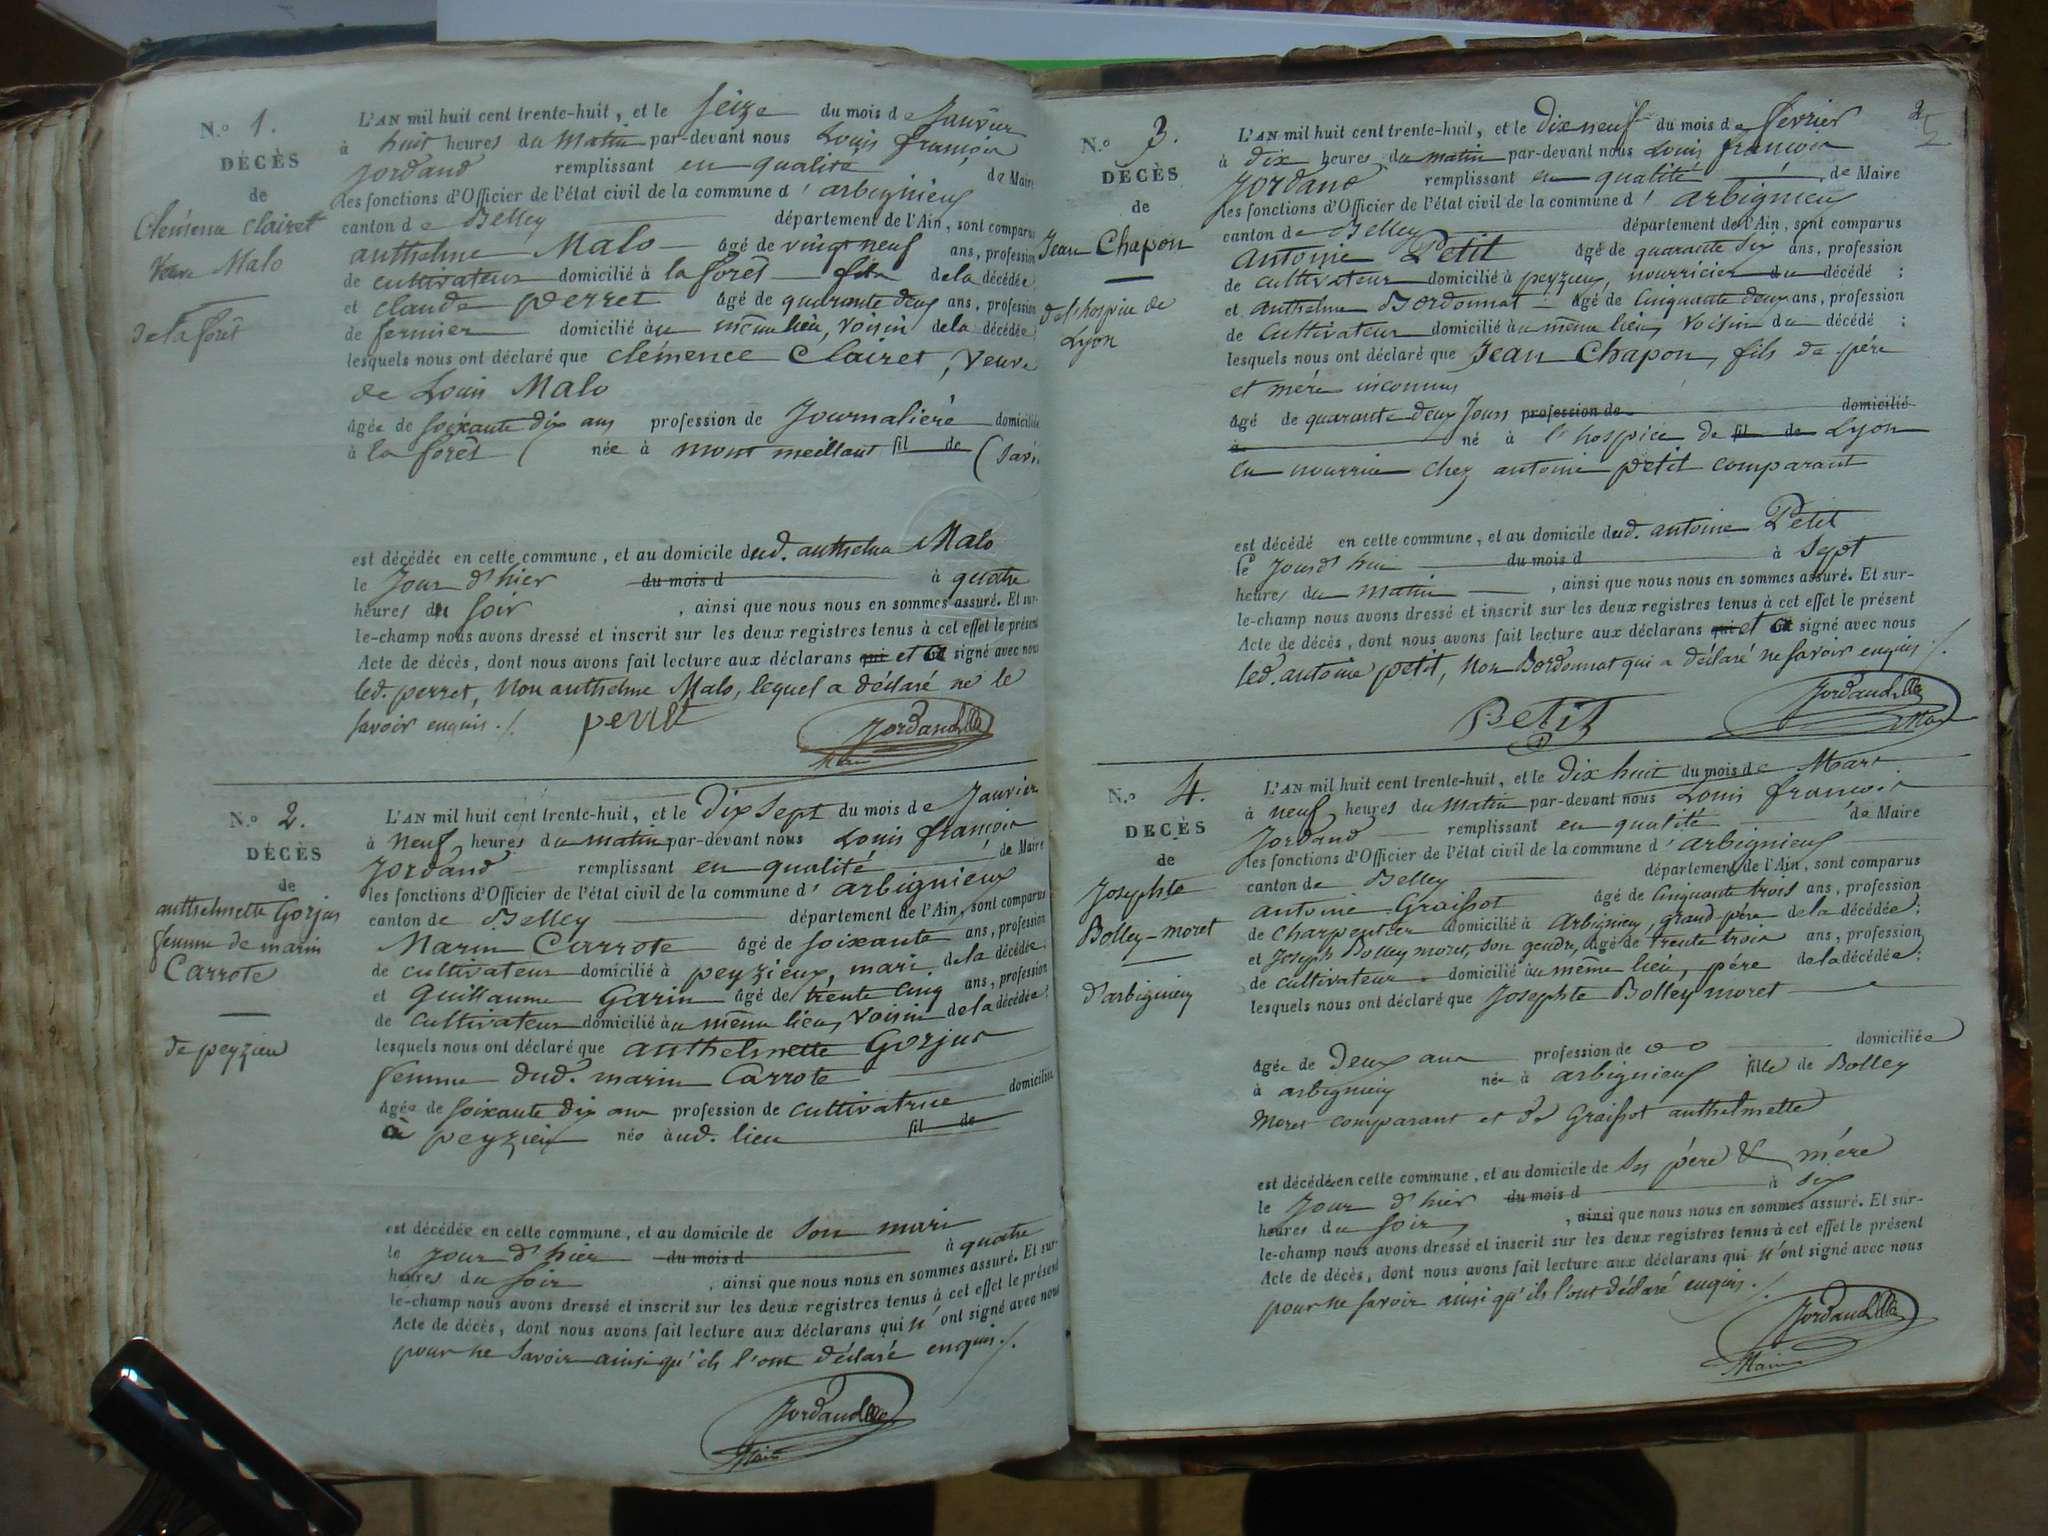 N.o 1.
DÉCÈS
de
Clémence Clairet
Veuve Malo
de la forêt
L'AN mil huit cent trente-huit, et le seize du mois de Janvier
à huit heures du matin par-devant nous Louis françois
Jordand remplissant en qualité de Maire
les fonctions d'Officier de l'état civil de la commune d'arbignieux
canton de Belley département de l'Ain, sont comparus
anthelme Malo âgé de vingt neuf ans, profession
de cultivateur domicilié à la forêt fils de la décédée
et claude perret âgé de quarante deux ans, profession
de fermier domicilié au même lieu, voisin de la décédée;
lesquels nous ont déclaré que clémence Clairet, veuve
de Louis Malo
âgée de soixante dix ans profession de Journalière domiciliée
à la forêt née à mont meillant fil de (Savoi
est décédée en cette commune, et au domicile dud. anthelme Malo
le Jour d'hier du mois d à quatre
heures du soir , ainsi que nous nous en sommes assuré. Et sur-
le-champ nous avons dressé et inscrit sur les deux registres tenus à cet effet le présent
Acte de décès, dont nous avons fait lecture aux déclarans qui et a signé avec nous
led. perret, Non anthelme Malo, lequel a déclaré ne le
savoir enquis ./.
perret
Jordand
Maire
N.o 2.
DÉCÈS
de
anthelmette Gorjus
femme de marin
Carrote
de peyzieu
L'AN mil huit cent trente-huit, et le Dix sept du mois de Janvier
à neuf heures du matin par-devant nous Louis françois
Jordand remplissant en qualité de Maire
les fonctions d'Officier de l'état civil de la commune d'arbignieux
canton de Belley département de l'Ain, sont comparus
Marin Carrote âgé de soixante ans, profession
de cultivateur domicilié à peyzieux, mari de la décédée;
et Guillaume Garin âgé de trente cinq ans, profession
de cultivateur domicilié au même lieu, voisin de la décédée;
lesquels nous ont déclaré que anthelmette Gorjus
femme dud. marin Carrote
âgée de soixante dix ans profession de cultivatrice domiciliée
à peyzieu née aud. lieu fil de
est décédée en cette commune, et au domicile de son mari
le Jour d'hier du mois d à quatre
heures du soir , ainsi que nous nous en sommes assuré. Et sur-
le-champ nous avons dressé et inscrit sur les deux registres tenus à cet effet le présent
Acte de décès, dont nous avons fait lecture aux déclarans qui n'ont signé avec nous
pour ne savoir ainsi qu'ils l'ont déclaré enquis ./.
Jordand
Maire
N.o 3.
DÉCÈS
de
Jean Chapon
de l'hospice de
Lyon
L'AN mil huit cent trente-huit, et le Dix neuf du mois de février
à dix heures du matin par-devant nous Louis françois
Jordand remplissant en qualité de Maire
les fonctions d'Officier de l'état civil de la commune d'arbignieux
canton de Belley département de l'Ain, sont comparus
Antoine Petit âgé de quarante six ans, profession
de cultivateur domicilié à peyzieu, nourricier du décédé ;
et anthelme Bordonnat âgé de Cinquante deux ans, profession
de Cultivateur domicilié au même lieu, voisin du décédé ;
lesquels nous ont déclaré que Jean Chapon, fils de père
et mère inconnus
âgé de quarante deux Jours profession de domicilié
à né à l'hospice de fil de Lyon
en nourrice chez antoine petit comparant
est décédé en cette commune, et au domicile dud. antoine Petit
le Jour d'hui du mois d à Sept
heures du matin , ainsi que nous nous en sommes assuré. Et sur-
le-champ nous avons dressé et inscrit sur les deux registres tenus à cet effet le présent
Acte de décès, dont nous avons fait lecture aux déclarans qui et a signé avec nous
led. antoine petit, Non Bordonnat qui a déclaré ne savoir enquis ./.
Petit
Jordand
Maire
N.o 4.
DÉCÈS
de
Josephte
Bolley-moret
d'arbignieu
L'AN mil huit cent trente-huit, et le Dix huit du mois de Mars
à neuf heures du matin par-devant nous Louis françois
Jordand remplissant en qualité de Maire
les fonctions d'Officier de l'état civil de la commune d'arbignieux
canton de Belley département de l'Ain, sont comparus
antoine Graissot âgé de Cinquante trois ans, profession
de Charpentier domicilié à Arbignieu, grand-père de la décédée;
et Joseph Bolley moret, son gendre, âgé de trente trois ans, profession
de cultivateur domicilié au même lieu, père de la décédée;
lesquels nous ont déclaré que Josephte Bolley moret
âgée de Deux ans profession de domiciliée
à arbignieu née à arbignieux fille de Bolley
Moret comparant et de Graissot anthelmette
est décédée en cette commune, et au domicile de ses père & mère
le Jour d'hier du mois d à six
heures du soir , ainsi que nous nous en sommes assuré. Et sur-
le-champ nous avons dressé et inscrit sur les deux registres tenus à cet effet le présent
Acte de décès, dont nous avons fait lecture aux déclarans qui n'ont signé avec nous
pour ne savoir ainsi qu'ils l'ont déclaré enquis ./.
Jordand
Maire